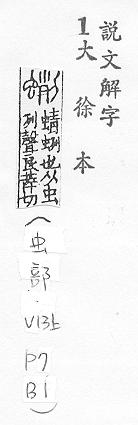 說文解字
1大徐本
蛚
蜻蛚也从虫
列聲良薛切
(虫部 V13上 P7 B1)